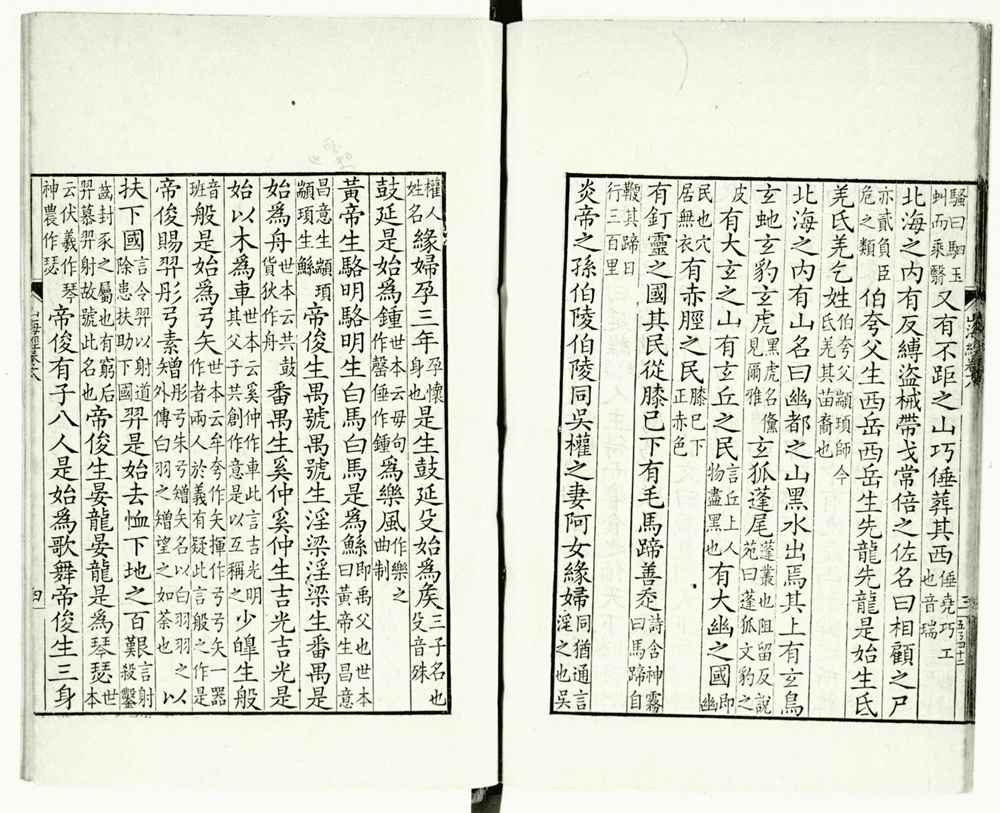 騷曰駟玉虬而乘鷖又有不距之山巧倕葬其西倕堯巧工也音瑞
北海之內有反縛盜械帶戈常倍之佐名曰相顧之尸
亦貳負臣危之類伯夸父生西岳西岳生先龍先龍是始生氐
羌氐羌乞姓伯夸父顓項師今氐羌其苗裔也
北海之內有山名曰幽都之山黑水出焉其上有玄鳥
玄虵玄豹玄虎黑虎名虪見爾雅玄狐蓬尾蓬叢也阻留反說苑曰蓬狐文豹之
皮有大玄之山有玄丘之民言丘上人物盡黑也有大幽之國即幽
民也穴居無衣有赤脛之民膝已下正赤色
有釘靈之國其民從膝已下有毛馬蹄善走詩含神霧曰馬蹄自
鞭其蹄日行三百里
炎帝之孫伯陵伯陵同吳權之妻阿女緣婦同猶通言淫之也吳
權人姓名緣婦孕三年孕懷身也是生鼓延殳始為矦三子名也殳音殊
鼓延是始為鍾世本云毋句作磬倕作鍾為樂風作樂之曲制
黃帝生駱明駱明生白馬白馬是為鯀即禹父也世本曰黃帝生昌意
昌意生顓項顓項生鯀帝俊生禺號禺號生淫梁淫梁生番禺是
始為舟世本云共鼓貨狄作舟番禺生奚仲奚仲生吉光吉光是
始以木為車世本云奚仲作車此言吉光明其父子共創作意是以互稱之少皥生般
般是始為弓矢世本云牟夷作矢揮作弓弓矢一器作者兩人於義有疑此言般之作是
帝俊賜羿彤弓素矰彤弓朱弓矰矢名以白羽羽之外傳曰白羽之矰望之如荼也以
扶下國言令羿以射道除患扶助下國羿是始去恤下地之百艱言射殺鑿
齒封豕之屬也有窮后羿慕羿射故號此名也帝俊生晏龍晏龍是為琴瑟世本
云伏羲作琴神農作瑟帝俊有子八人是始為歌舞帝俊生三身
四